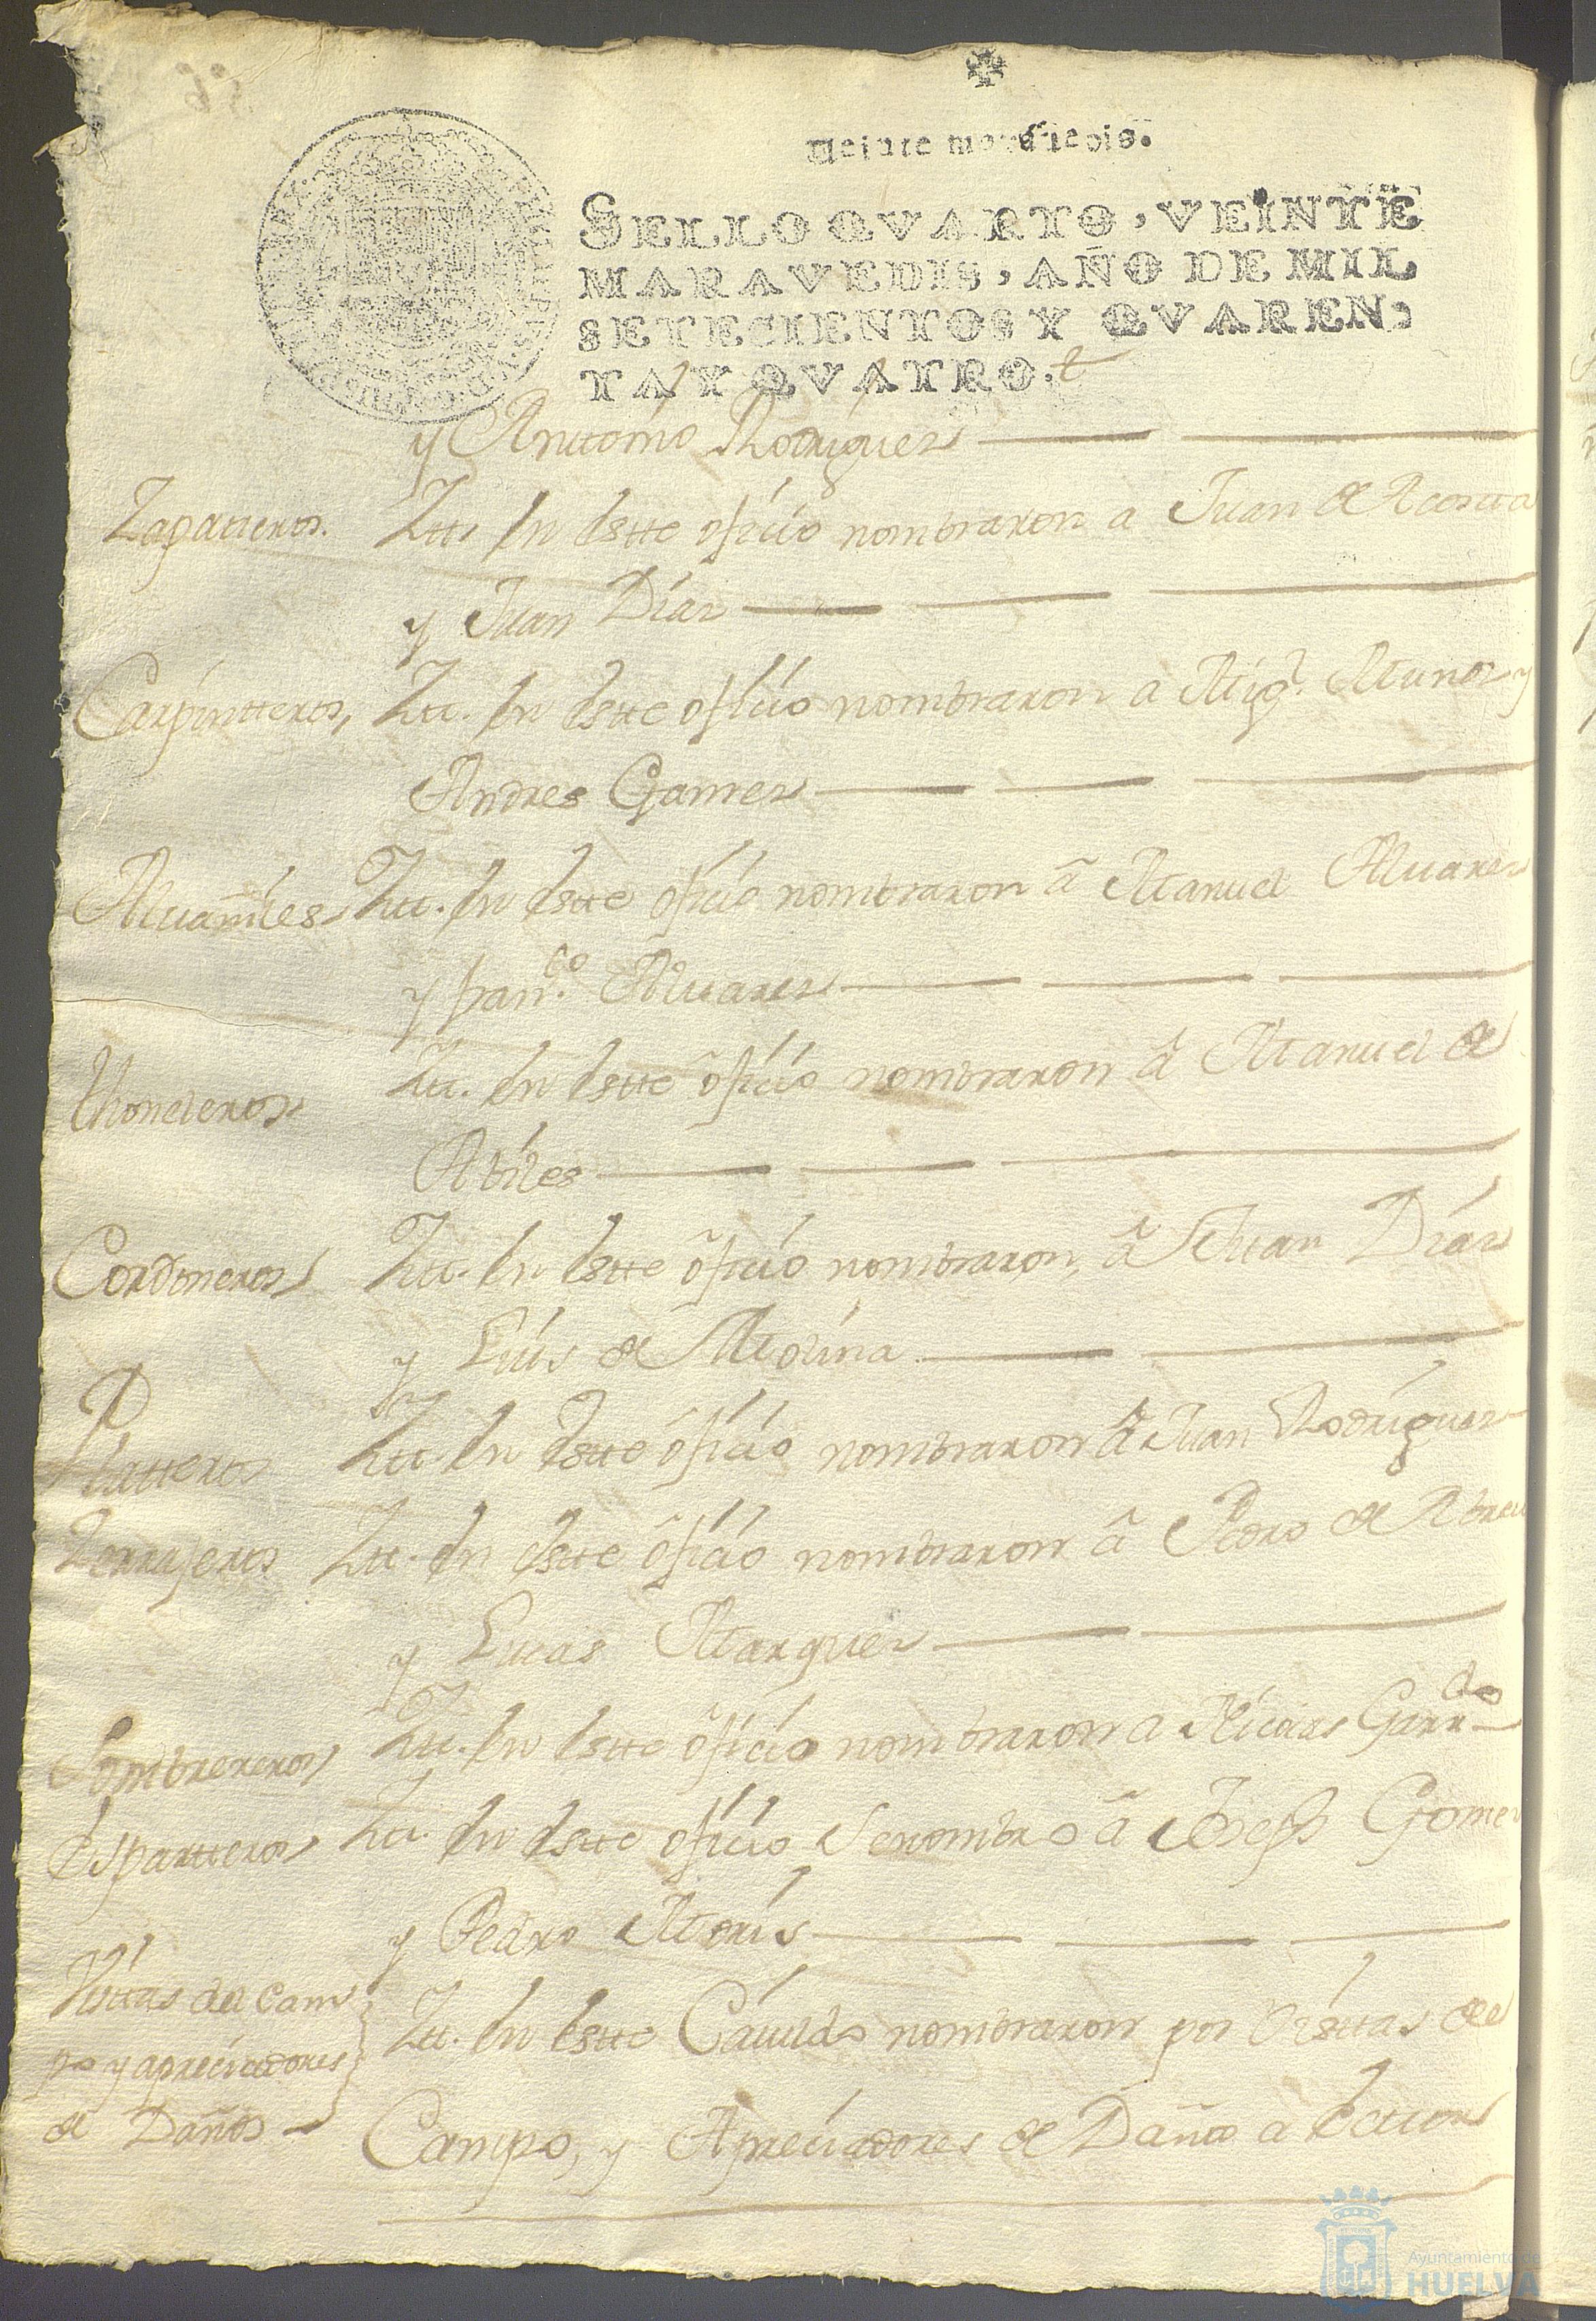 Veinte marauedis.
SELLO QVARTO, VEINTE
MARAVEDIS, AÑO DE MIL
SETECIENTOS Y QVAREN,
TA Y QVATRO.
y Anttonio Rodriguez
Zapatteros. Ytt. En Estte ofiçio nombraron a Juan de Acosta
y Juan Díaz
Carpintteros, Ytt. En Estte ofiçio nombraron a Migl. Munoz y
Andres Gamez
Aluañíles Ytt. En Estte ofiçio nombraron â Manuel Aluarez
y Fran.co Aluarez
Ytt. En Estte ôfiçio nombraron â Manuel de
thoneleros
Abíles
Cordoneros Ytt. En Estte ôfiçio nombraron, â Juan Díaz
y Luís de Molina
Platteros Ytt. En Estte ôfiçio nombraron â Juan Rodríguez
Zerrajeros Ytt. En Estte ôfiçio nombraron â Pedro de Abreu
y Lucas Marquez
Sombrereros Ytt. En Estte ôfiçio nombraron a Nícolas Garrdo
Espartteros Ytt. En Estte ofiçio Senombro â Joseph Gomez
y Pedro
Vísttas del Cam
po y apreciadores
de Daños
Ytt. En Estte Cauildo nombraron por Vísttas de
Campo, y Apreciadores de Daños a
Ayuntamiento de
HUELVA